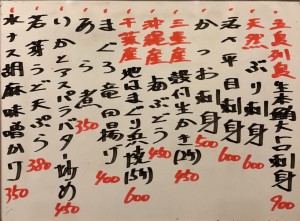 五島列島 生本鮪大トロ刺身 900
天然 ぶり刺身 600
活〆平目刺身 600
かつお刺身 500
三重産 殻付生かき(2ヶ) 450
沖縄産 あぶどう 450
千葉産 地はまぐり浜焼(5ヶ) 600
まぐろ竜田揚げ 400
あら煮 350
いかとアスパラバター炒め 450
若芽うど天ぷら 380
水ナス胡麻味噌かけ 350